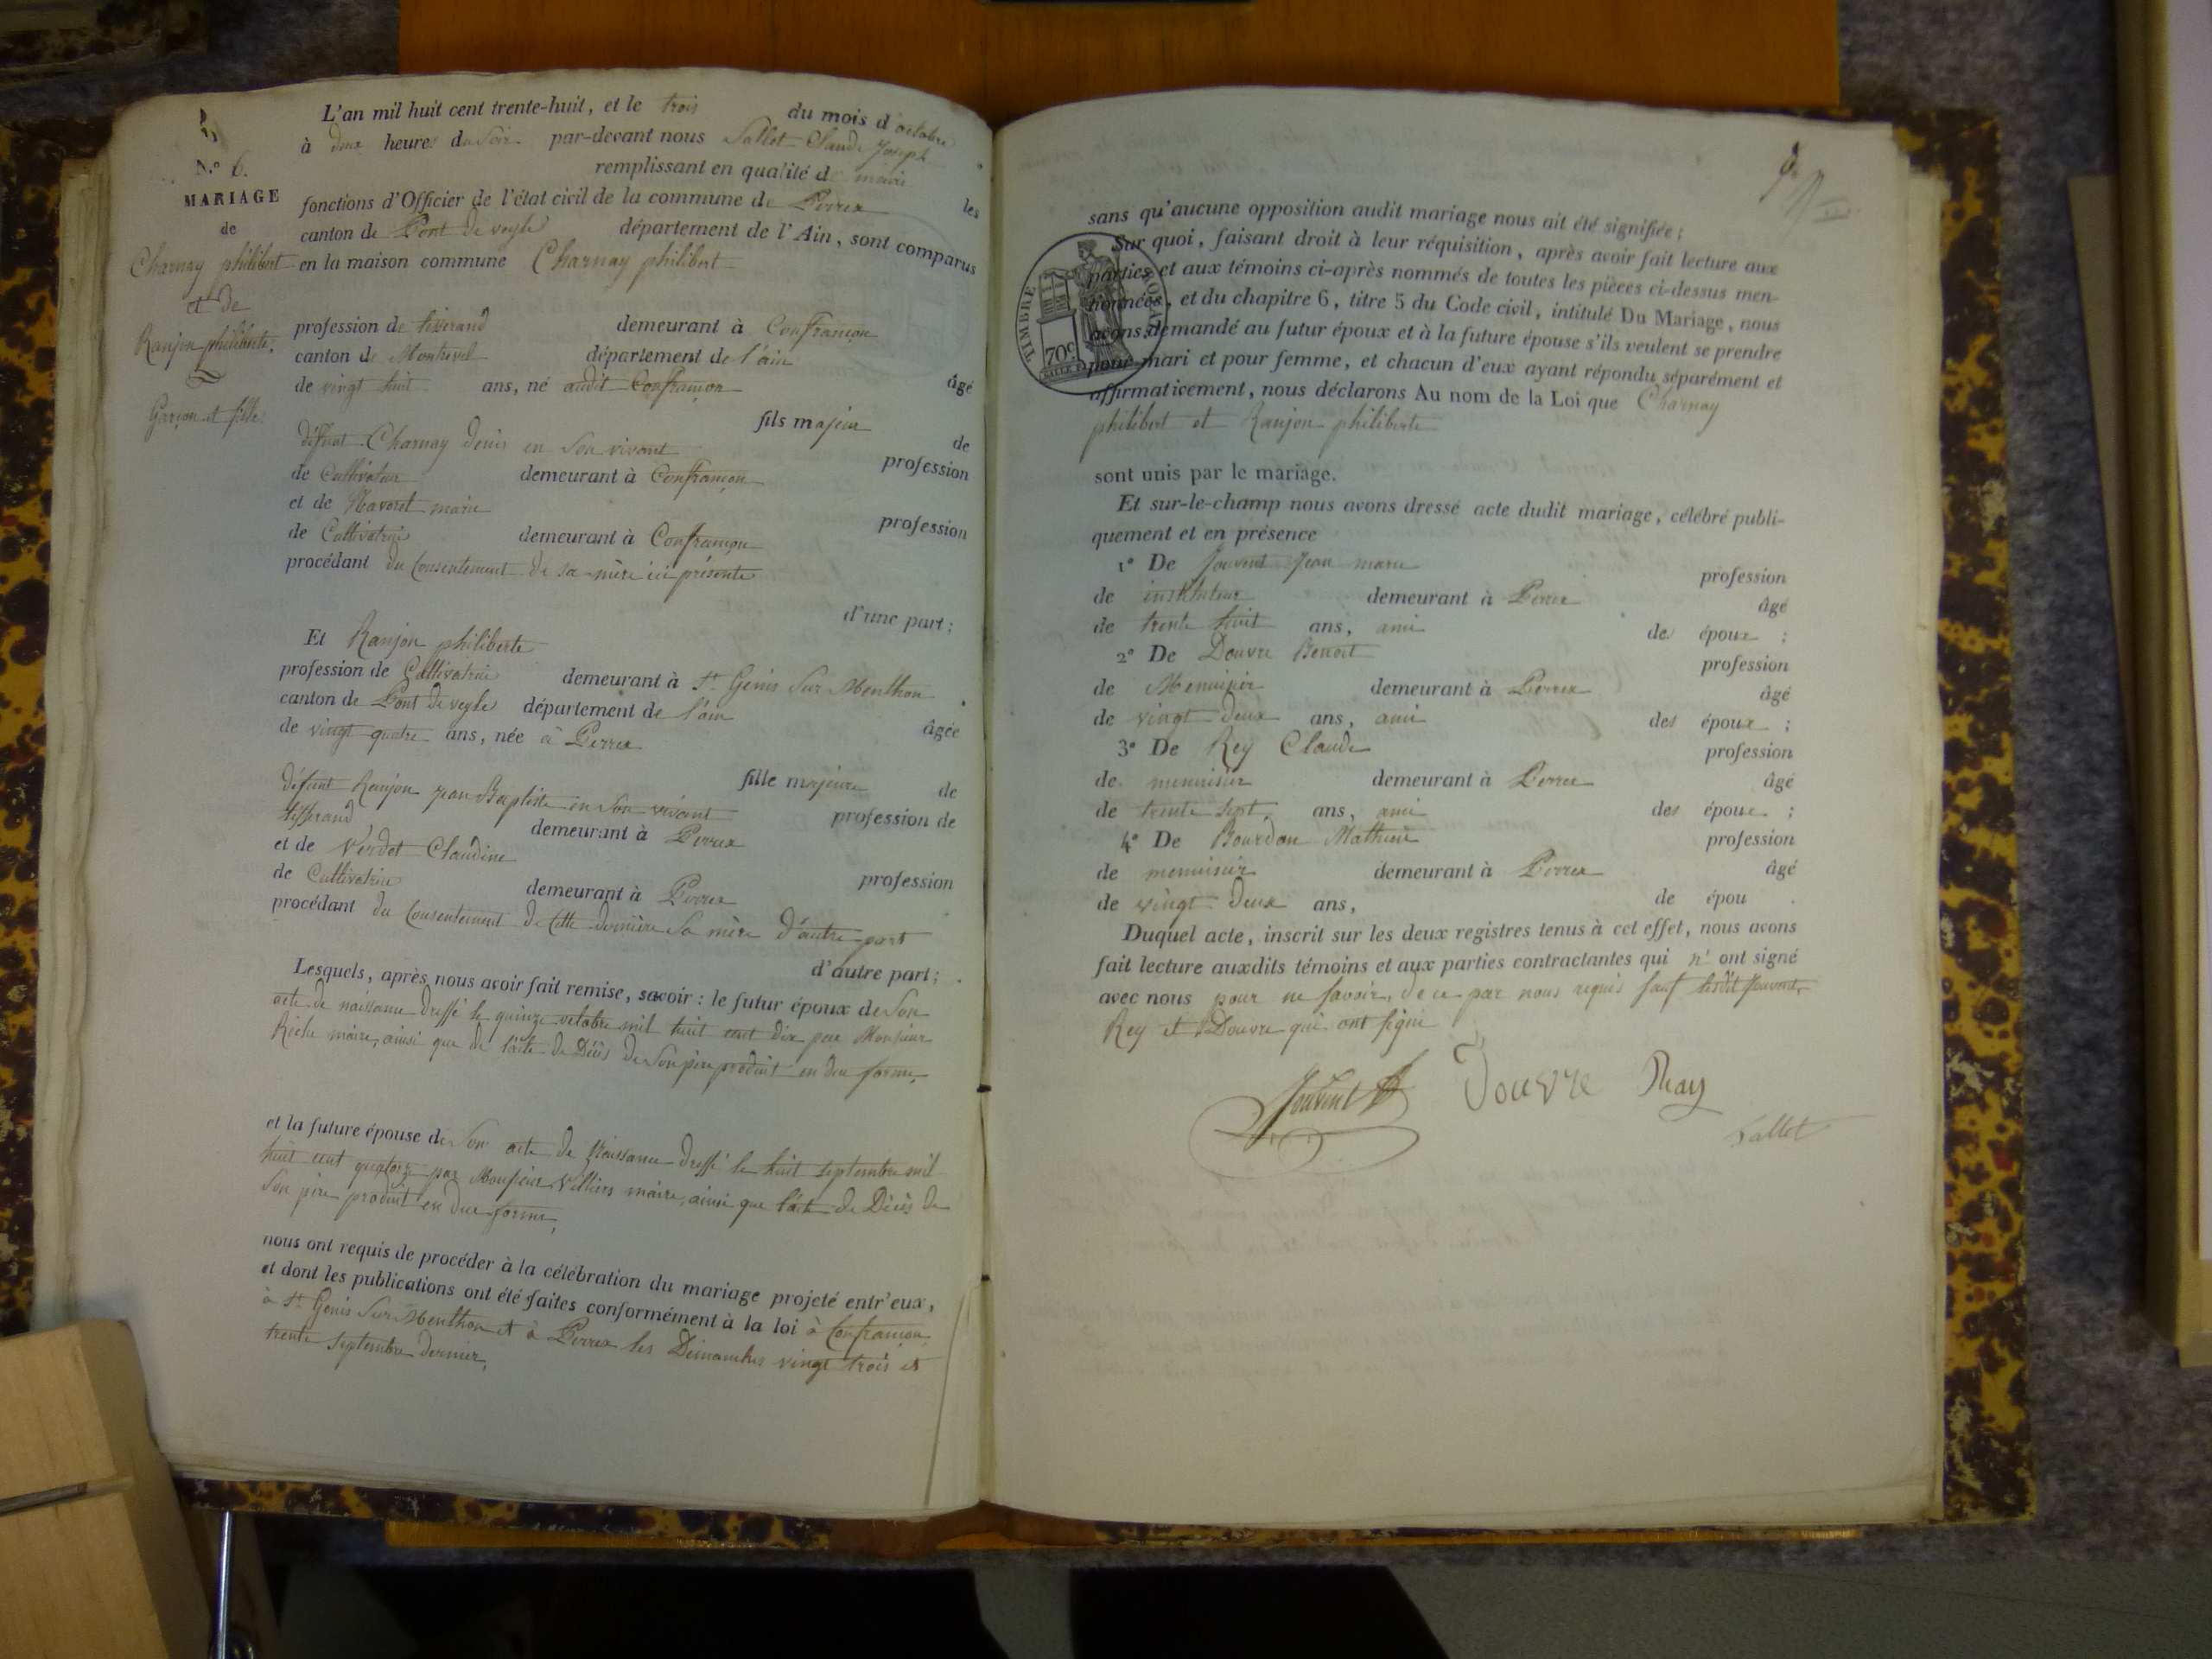 N.º 6.
MARIAGE
de
Charnay philibert
et de
Ranjon philiberte,
Garçon et fille
L'an mil huit cent trente-huit, et le trois du mois d'octobre
à deux heures du Soir par-devant nous Sallet Claude Joseph
remplissant en qualité de maire les
fonctions d'Officier de l'état civil de la commune de Perrex
canton de Pont de veyle département de l'Ain, sont comparus
en la maison commune Charnay philibert
profession de tisserand demeurant à Confrançon
canton de Montrevel département de l'ain âgé
de vingt huit ans, né audit Confrançon
fils majeur de
déffunt Charnay denis en Son vivant profession
de Cultivateur demeurant à Confrançon
et de Mavoret marie profession
de Cultivatrice demeurant à Confrançon
procédant du Consentement de sa mère ici présente
d'une part;
Et Ranjon philiberte
profession de Cultivatrice demeurant à St. Genis Sur Menthon
canton de Pont de veyle département de l'ain âgée
de vingt quatre ans, née à Perrex
fille majeure de
défunt Ranjon jean Baptiste en Son vivant profession de
tisserand demeurant à Perrex
et de Verdet Claudine profession
de Cultivatrice demeurant à Perrex
procédant du Consentement de Cette dernière Sa mère d'autre part
d'autre part;
Lesquels, après nous avoir fait remise, savoir: le futur époux de Son
acte de naissance dressé le quinze octobre mil huit cent dix par Monsieur
Riche maire, ainsi que de l'acte de Décès de Son père produit en due forme,
et la future épouse de Son acte de Naissance dressé le huit septembre mil
huit cent quatorze par Monsieur Villiers maire, ainsi que l'acte de Décès de
Son père produit en due forme,
nous ont requis de procéder à la célébration du mariage projeté entr'eux,
et dont les publications ont été faites conformément à la loi à Confrançon
à St. Genis Sur Menthon et à Perrex les Dimanches vingt trois et
trente septembre dernier,
sans qu'aucune opposition audit mariage nous ait été signifiée;
Sur quoi, faisant droit à leur réquisition, après avoir fait lecture aux
parties et aux témoins ci-après nommés de toutes les pièces ci-dessus men-
tionnées, et du chapitre 6, titre 5 du Code civil, intitulé Du Mariage, nous
avons demandé au futur époux et à la future épouse s'ils veulent se prendre
pour mari et pour femme, et chacun d'eux ayant répondu séparément et
affirmativement, nous déclarons Au nom de la Loi que Charnay
philibert et Ranjon philiberte
TIMBRE ROYAL
70c
sont unis par le mariage.
Et sur-le-champ nous avons dressé acte dudit mariage, célébré publi-
quement et en présence
1º De Jouvent Jean marie profession
de instituteur demeurant à Perrex âgé
de trente huit ans, ami des époux ;
2º De Douvre Benoit profession
de Menuisier demeurant à Perrex âgé
de vingt deux ans, ami des époux ;
3º De Rey Claude profession
de menuisier demeurant à Perrex âgé
de trente sept ans, ami des époux ;
4º De Bourdon Mathieu profession
de menuisier demeurant à Perrex âgé
de vingt deux ans, de épou .
Duquel acte, inscrit sur les deux registres tenus à cet effet, nous avons
fait lecture auxdits témoins et aux parties contractantes qui n' ont signé
avec nous pour ne savoir, de ce par nous requis sauf lesdit Jouvent,
Rey et Douvre qui ont signé
Jouvent Douvre Rey
Sallet